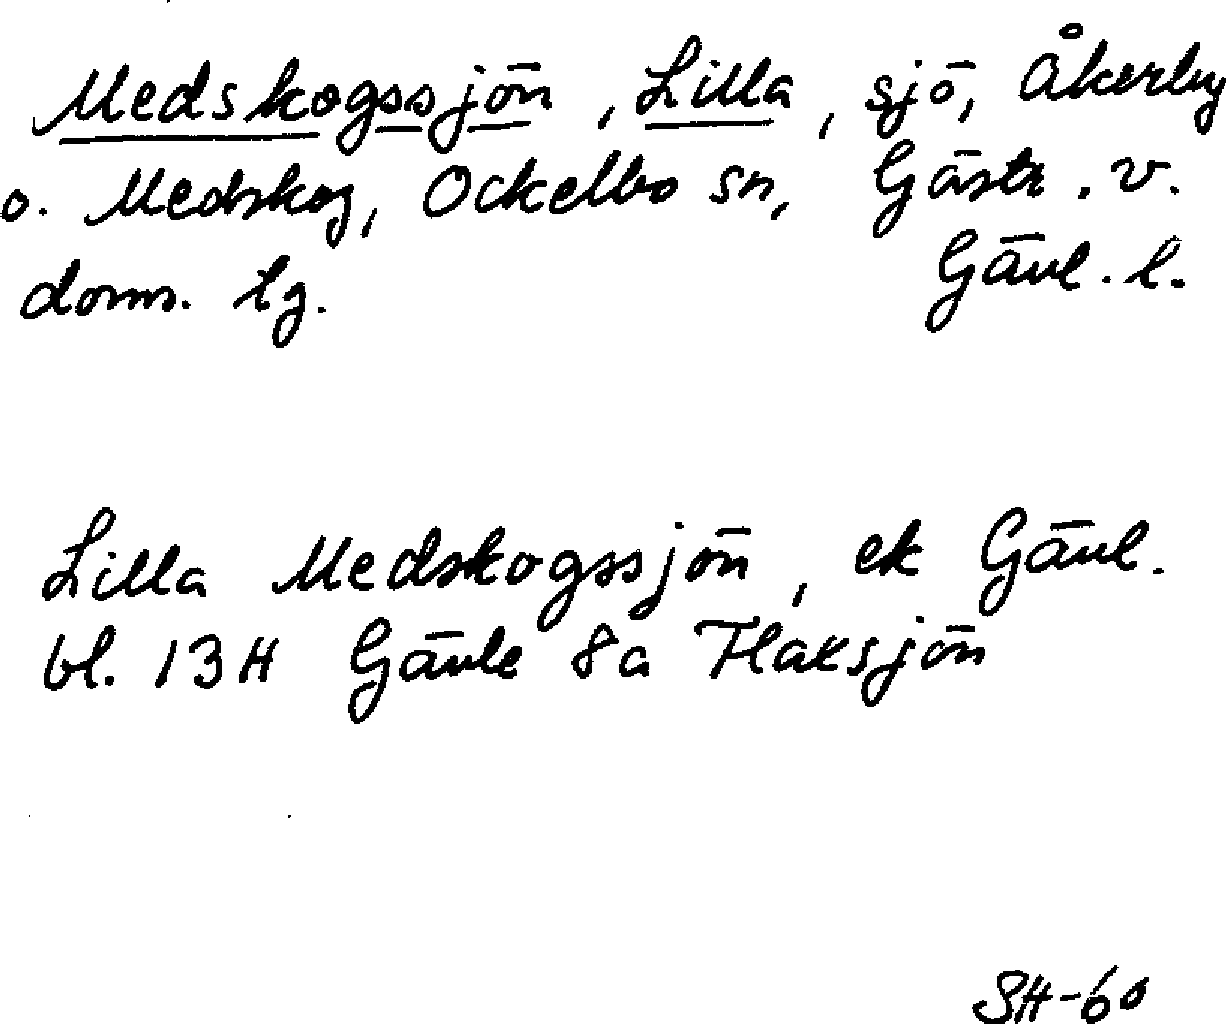 Medskogssjön, Lilla, sjö, Åkerby
o. Medskog, Ockelbo sn, Gästr. v.
doms. tg. Gävl. l.
Lilla Medskogssjön, ek Gävl.
bl. 13H Gävle 8a Flaksjön
SH-60